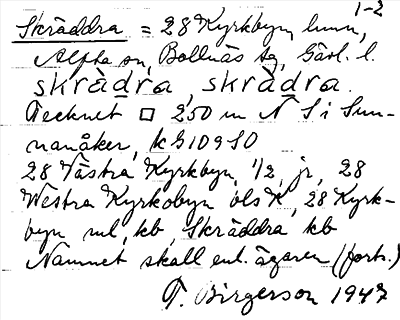 1-2
Skräddra = 28 Kyrkbyn,
Alfta sn, Bollnäs tg, Gävl. l.
skrädra, skrädra.
Tecknet □ 250 m N S i Sun-
nanåker, k G109 SO
28 Västra Kyrkbyn, 1/2, jr, 28
Westra Kyrkobyn ols K, 28 Kyrk-
byn ml, kb, Skräddra kb
Namnet skall enl. ägaren (forts.)
T. Birgerson 1947